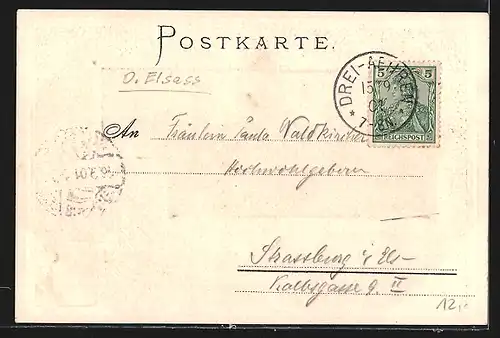 POSTKARTE.
D. Elsass
* DREI-AEHREN *
15/9.
01
7-8N.
5 5
REICHSPOST
An Fräulein Paula Waldkircher
Hochwohlgeboren
16.9.01
Strassburg i/ Els-
Kalbsgasse 9 II
12,-